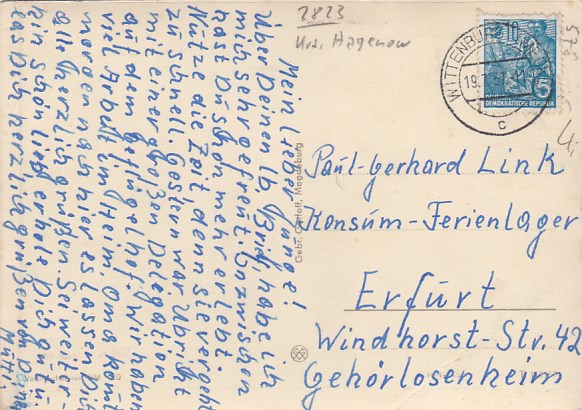 2823
Krs. Hagenow
WITTENBURG
19.
c
DEUTSCHE
DEMOKRATISCHE REPUBLIK
5
Mein lieber Junge!
Über Deinen lb. Brief habe ich
mich sehr gefreut. Inzwischen
hast Du schon mehr erlebt.
Nütze die Zeit, denn sie vergeht
zu schnell. Gestern war Ulbricht
mit einer großen Delegation
auf dem Geflügelhof. Wir haben
viel Arbeit im Heim. Oma kommt
morgen nach hier es lassen Dich
alle herzlich grüßen. Sei weiter-
hin schön lieb erhole Dich gut
laß Dich herzlich grüßen von Deiner
Mutti.
Gebr. Garloff, Magdeburg
Paul-Gerhard Link
Konsum-Ferienlager
Erfurt
Windhorst-Str. 42
Gehörlosenheim